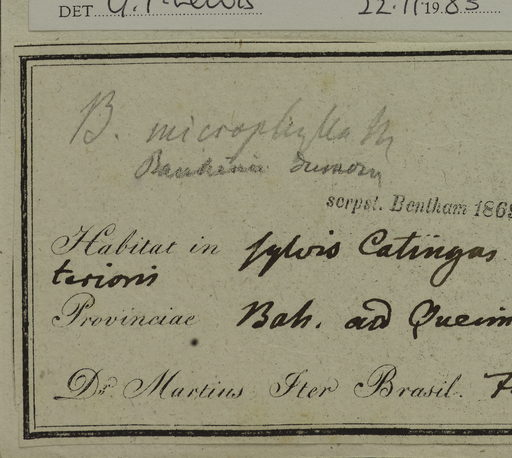 DET G.P. Lewis 22.11 1983
B. microphylla M
Bauhinia
scrpst. Bentham 1869
Habitat in sylvis Catingas
terioris
Provinciae Bah. ad Queim
Dr. Martius Iter Brasil.